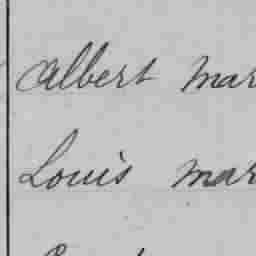 Albert Mar
Louis Mar